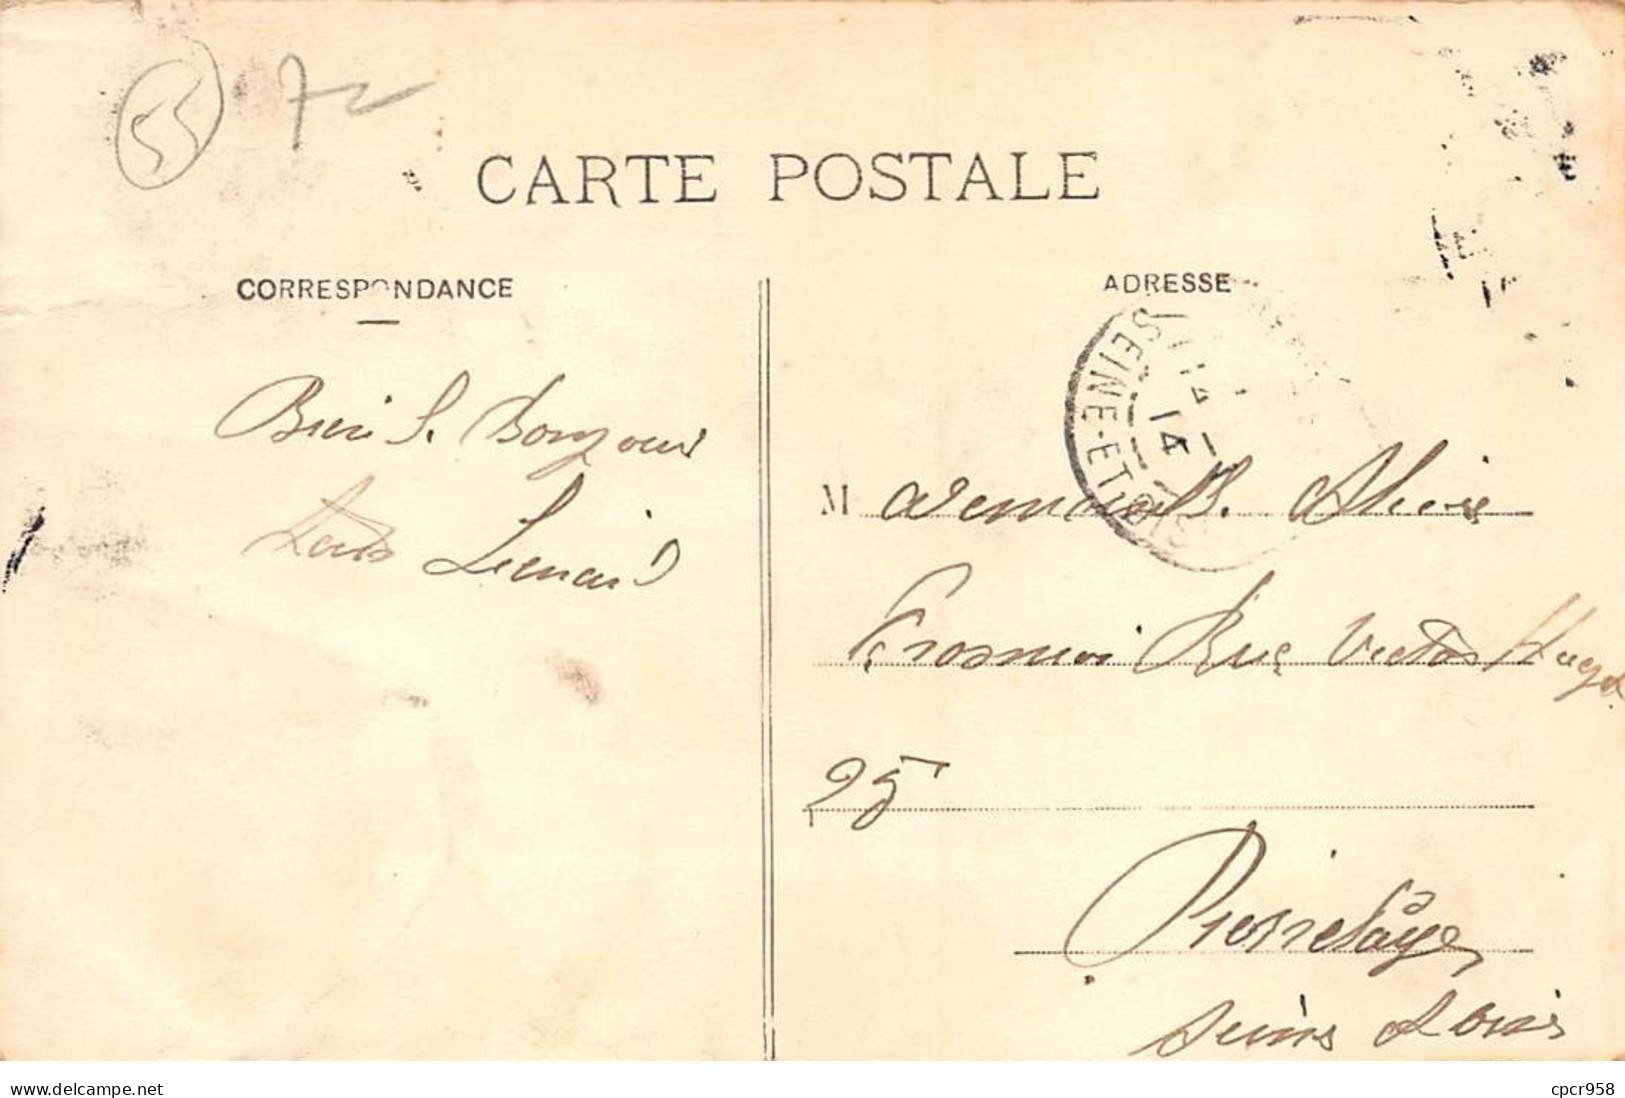 55 72
CARTE POSTALE
CORRESPONDANCE
Bien S. Bonjour
Louis Lienard
ADRESSE
SEINE-ET-OISE
14
14
M
Rue Victor Hugo
25
Pierrelaye
Seine & Oise
www.delcampe.net
cpcr958